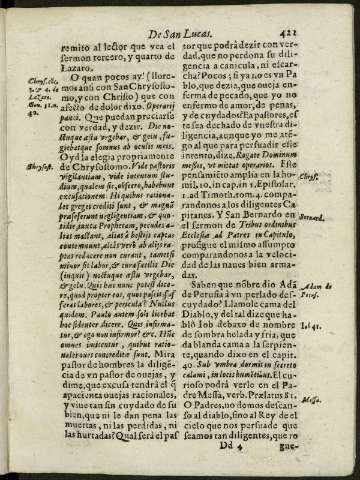 De San Lucas.
421
remito al lector que vea el
sermon tercero, y quarto de
Lazaro.
O quan pocos ay! (lloremos
ansi con San Chrysostomo,
y con Christo) que con
afecto de dolor dixo. Operarij
pauci. Que puedan preciarse
con verdad, y dezir. Die noctuque
æstu vrgebar, & gelu, fugiebatque
somnus ab oculis meis.
Oyd la elegia propriamente
de Chrysostomo. Vide pastoris
vigilantiam, vide intentum studium,
qualem sic, obsecro, habebunt
excusationem Hi quibus rationales
greges crediti sunt, & magnã
præseferunt negligentiam, & quotidie
iuxta Prophetam, pecudes alias
mactant, alias à bestijs captas
contemnunt, alias verò ab alijs raptas
redacere non curant, tametsi
minor sit labor, & cura facilis Die
(inquit) noctuque æstu vrgebar,
& gelu. Quis hoc nunc potest dicere,
quod propter oues
feras labores, & pericula? Nullus
quidem. Paulo autem soli licebat
hoc fidenter dicere. Quis infirmatur,
& ego non infirmor? &c. Hæc
omnes imitentur, quibus rationales
oues concreditæ sunt. Mira
pastor de hombres la diligencia
de vn pastor de ouejas, y
dime, que excusa tendrá el q̃
apacienta ouejas racionales,
y viue tan sin cuydado de su
bien, que ni le dan pena las
muertas, ni las perdidas, ni
las hurtadas? Qual será el pastor
que podrà dezir con verdad,
que no perdona su diligencia
a canicula, ni escarcha?
Pocos; si ya no es vn Pablo,
que dezia, que oueja enferma
de pecado, que yo no
enfermo de amor, de penas,
y de cuydados? Ea pastores, esto
es dechado de vuestra diligencia,
aunque yo me atengo
al que para persuadir este
intento, dize. Rogate Dominum
messis, vt mittat operarios. Este
pensamiẽto amplia en la homil.
10. in cap. in 1. Epistolar.
1. ad Timoth. rom. 4. comparandonos
a los diligentes Capitanes.
Y San Bernardo en
el sermon de Tribus ordinibus
Ecclesiæ ad Patres in Capitulo,
prosigue el mismo assumpto
comparandonos a la velocidad
de las naues bien armadas.
Saben que nõbre dio Adã
de Perusia à vn perlado descuydado?
Llamole cama del
diablo, y del tal dize que hablò
Iob debaxo de nombre
de sombra helada y fria, que
da blanda cama a la serpiente,
quando dixo en el capit.
40. Sub vmbra dormit in secreto
calami, in locis humẽtibus. El curioso
podrà verle en el Padre
Messa, verb. Prælatus 81.
O Padres, no demos descanso
al diablo, sino al Rey de el
cielo que nos persuade que
seamos tan diligentes, que ro
Dd 4
gue-
Chrysost.
Chrys.
Bernard.
Adam de
Perus.
Iob 41.
Messa.